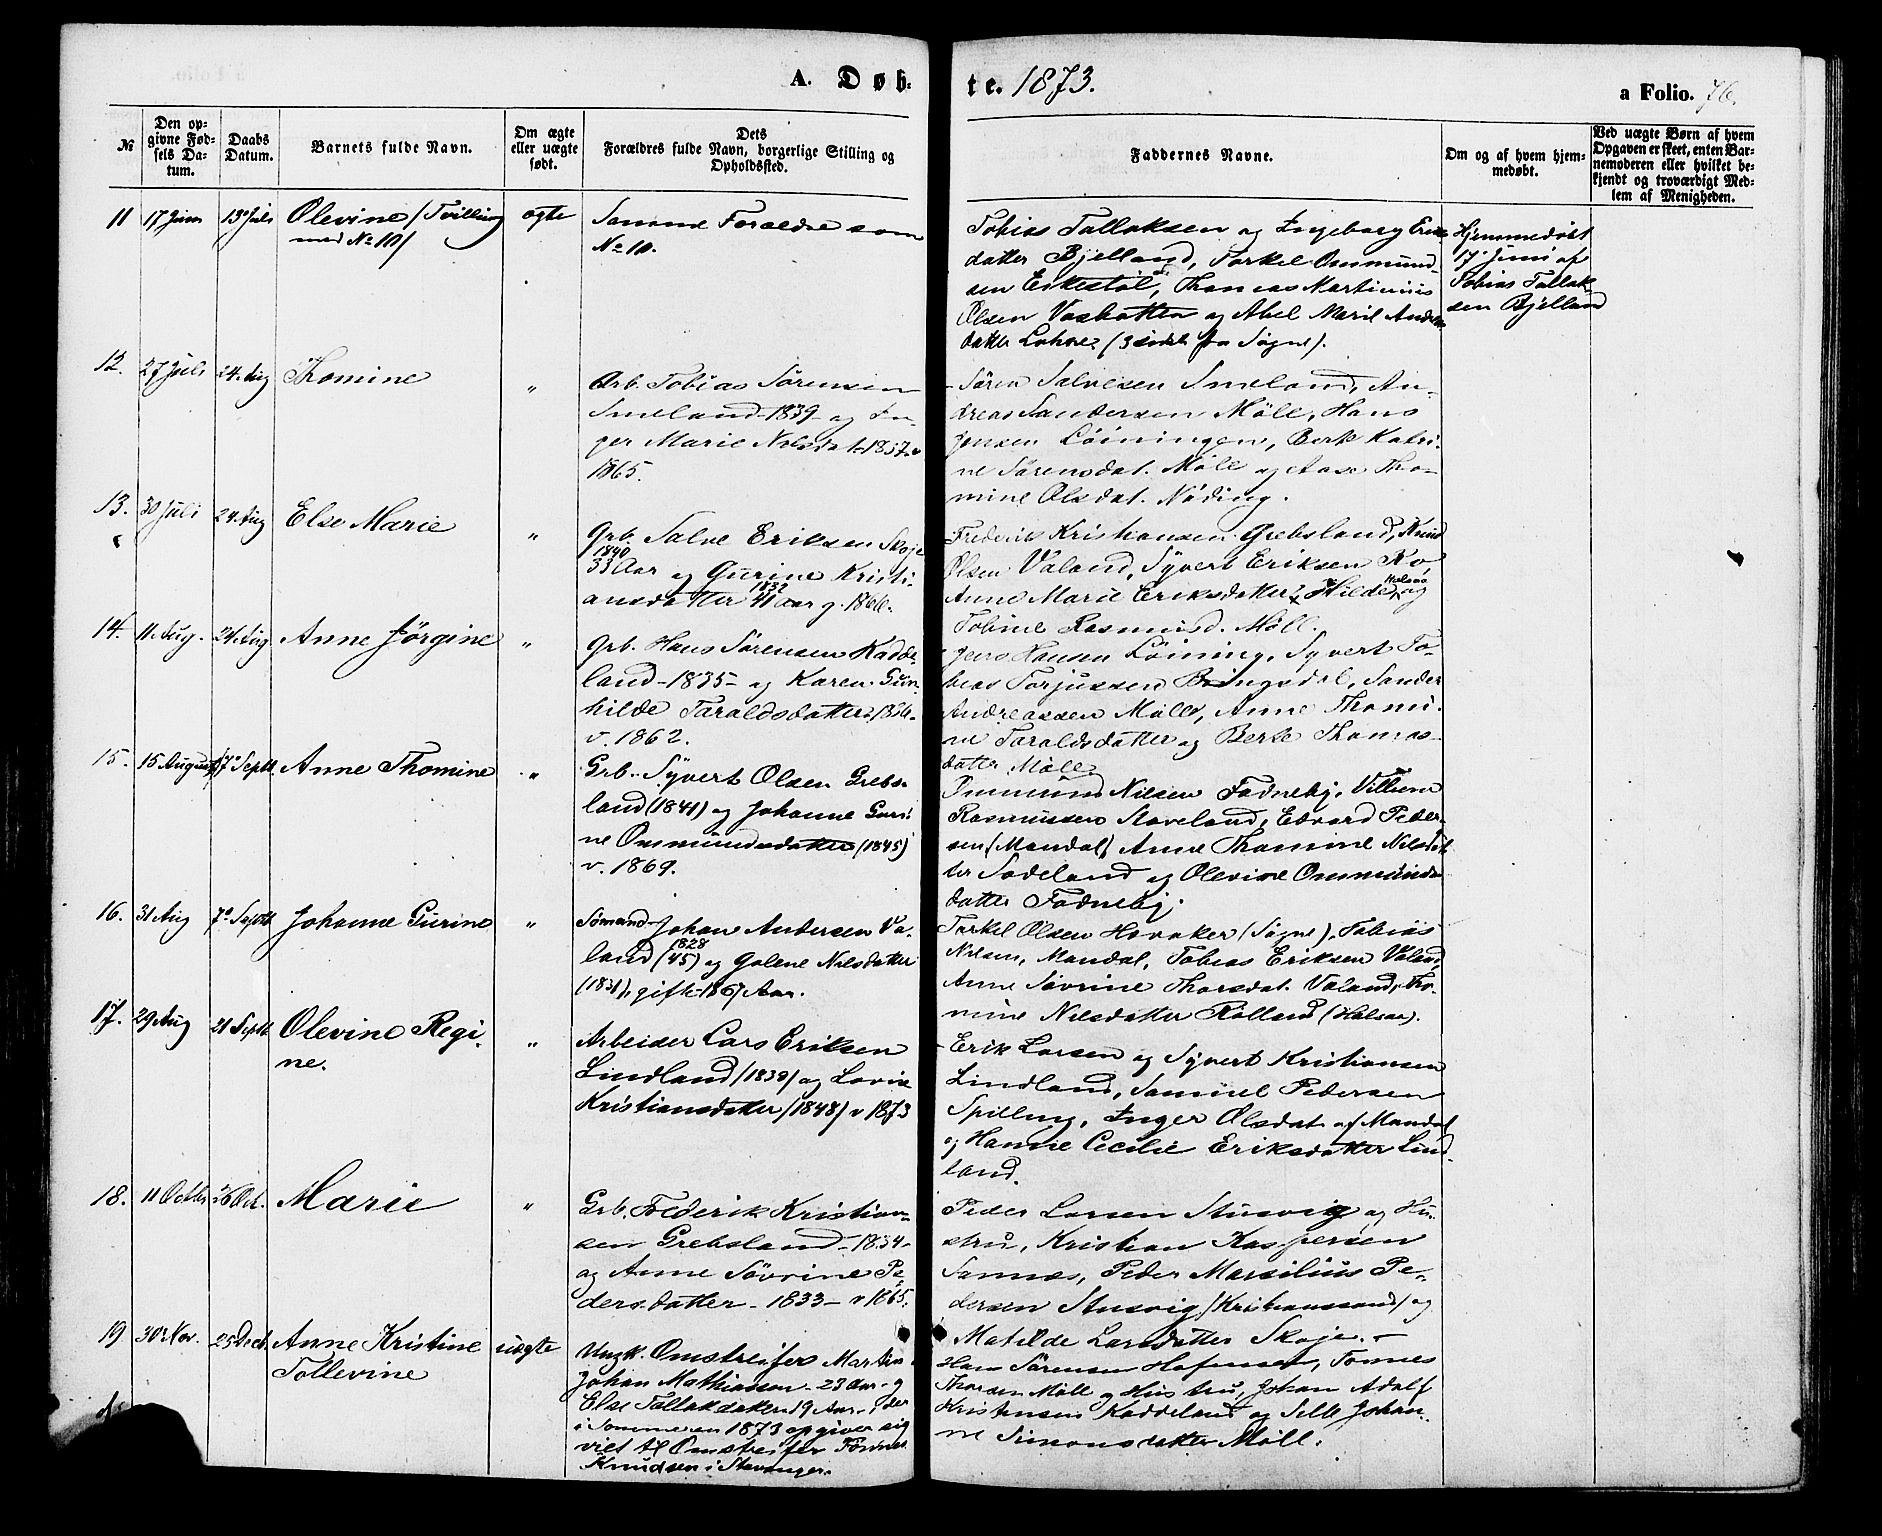 A. Døb-
te. 1873.
a Folio. 76.
№
Den op-
givne Fød-
sels Da-
tum.
Daabs
Datum.
Barnets fulde Navn.
Om ægte
eller uægte
født.
Dets
Forældres fulde Navn, borgerlige Stilling og
Opholdssted.
Faddernes Navne.
Om og af hvem hjem-
medøbt.
Ved uægte Børn af hvem
Opgaven er skeet, enten Bar-
nemoderen eller hvilket be-
kjendt og troværdigt Med-
lem af Menigheden.
11 17 Juni 13 Juli Olevine (Tvilling
med No 10) ægte
Samme Forældre som
No 10.
Tobias Tallaksen og Ingeborg Eriks
datter Bjelland, Torkel Ommund-
sen Eikestøl, Thomas Martinius
Olsen Vashatten og Abel Marie Anders
datter Lohne (3 sidste fra Søgne).
Hjemmedøbt
17 Juni af
Tobias Tallak-
sen Bjelland
12. 27 Juli 24. Aug Thomine "
Arb. Tobias Sørensen
Smeland - 1839 - og In-
ger Marie Nilsdat. 1837. v
1865.
Søren Salvesen Smeland, An-
dreas Sandersen Møll, Hans
Jensen Løiningen, Berte Katri-
ne Sørensdat. Møll og Aase Tho-
mine Olsdat. Nøding.
13. 30 Juli 24. Aug Else Marie "
Grb. Salve Eriksen Skoje
1840
33 Aar og Gurine Kristi-
1832
ansdatter 41 aar g. 1866.
Frederik Kristiansen Grebsland, Knud
Olsen Valand, Syvert Eriksen Ro,
Anne Marie Eriksdatter Hilde, Halsaa og
Tobine Rasmusd. Møll.
14. 11 Aug. 24. Aug Anne Jørgine "
Grb. Hans Sørensen Kadde-
land - 1835 - og Karen Gun-
hilde Taraldsdatter
v. 1862.
Jens Hansen Løining, Syvert To-
bias Torjussen Bringsdal, Sander
Andreassen Møll, Anne Thomi-
ne Taraldsdatter og Berte Thomas-
datter Møll.
15. 15 August 7 Septb Anne Thomine "
Grb. Syvert Olsen Grebs-
land (1841) og Johanne Guri-
ne Ommundsdatter (1845)
v. 1869.
Ommund Nilsen Fadneby, Villum
Rasmussen Staveland, Edvard Peder-
sen (Mandal) Anne Thomine Nilsdat
ter Sodeland og Olevine Ommunds
datter Fadneby.
16. 31 Aug 7 Septb Johanne Gurine "
Sømand Johan Andersen Va-
1828
land (45) og Golene Nilsdatter
(1831), gifte 1867 Aar.
Torkel Olsen Hovaker (Søgne), Tobias
Nilsen, Mandal, Tobias Eriksen Valand,
Anne Sørine Thorsdat. Valand, Tho-
mine Nilsdatter Rølland (Halsaa).
17. 29 Aug 21 Septb Olevine Regi-
ne. "
Arbeider Lars Eriksen
Lindland (1838) og Lovise
Kristiansdatter (1848) v 1873
Erik Larsen og Syvert Kristiansen
Lindland, Samuel Pedersen
Spilling, Inger Olsdat. af Mandal
og Hanne Cecilie Eriksdatter Lind-
land.
18. 11 Octbr 26 Oct. Marie "
Grb. Frederik Kristian-
sen Grebsland - 1834 -
og Anne Søvrine Pe-
dersdatter - 1833 - v 1865.
Peder Larsen Stusvig og Hu-
stru, Kristian Kaspersen
Sannæs, Peder Marsilius Pe-
dersen Stusvig (Kristianssand) og
Matilde Larsdatter Skoje.
19 30 Nov. 25 Decb. Anne Kristine
Tollevine uægte
Ungk. Omstreifer Martin
Johan Mathiassen - 23 Aar - og
Else Tallaksdatter 19 Aar, der
i Sommeren 1873 opgiver sig
viet til Omstreifer Tønnes
Knudsen i Stavanger.
Hans Sørensen Hafensen, Tønnes
Thorsen Møll og Hustru, Johan Adolf
Kristensen Kaddeland og Sille Johan-
ne Simonsdatter Møll.